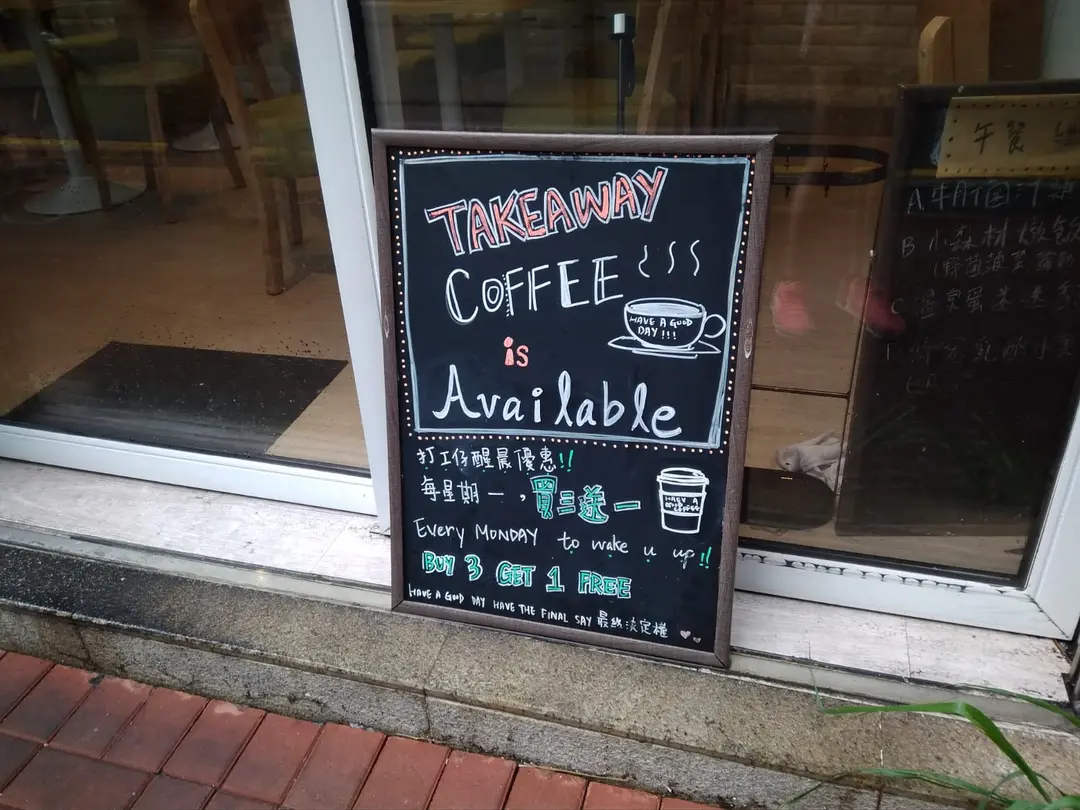 TAKEAWAY
COFFEE
HAVE A GOOD
DAY !!!
is
Available
打工仔醒晨優惠!!
每星期一，買三送一
HAEV A
GOOD
COFFEE
Every MONDAY to wake u up!!
BUY 3 GET 1 FREE
HAVE A GOOD DAY HAVE THE FINAL SAY 最終決定權
午餐 Lu
A
B 小森林燉飯
C